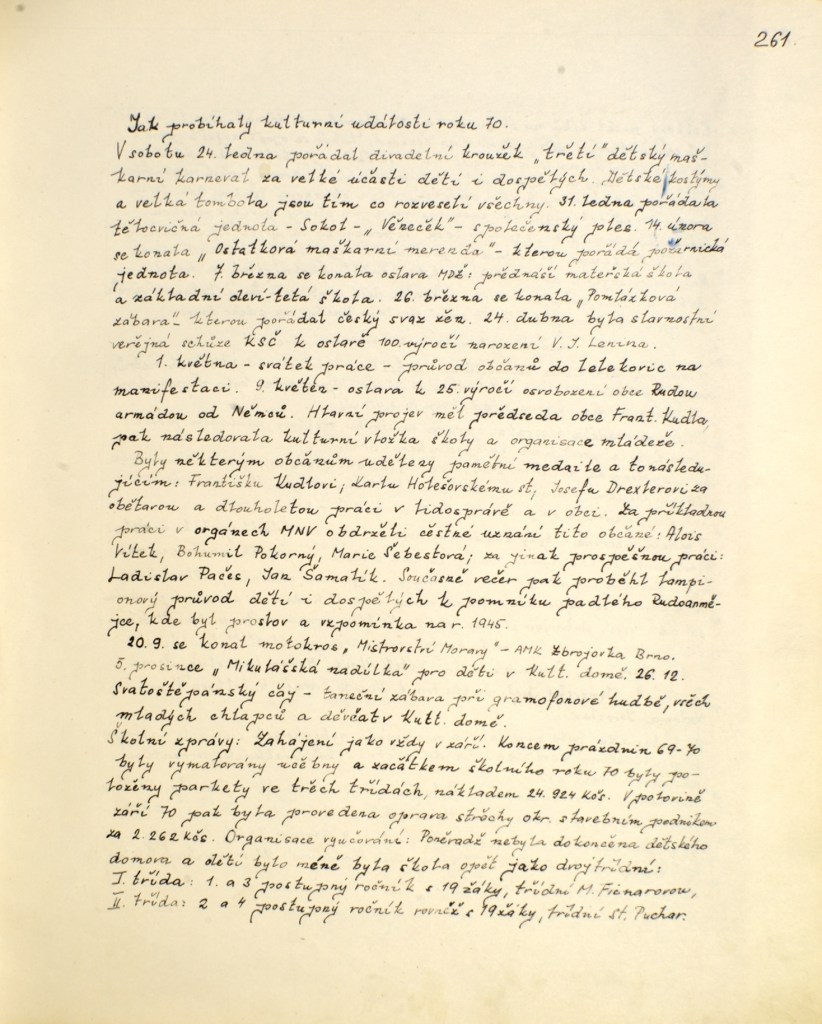 261.
Jak probíhaly kulturní události roku 70.
V sobotu 24. ledna pořádal divadelní kroužek „třetí" dětský maš-
karní karneval za velké účasti dětí i dospělých. Dětské kostýmy
a velká tombola jsou tím co rozveselí všechny. 31. ledna pořádala
tělocvičná jednota - Sokol - „Věneček" - společenský ples. 14. února
se konala „Ostatková maškarní merenda" - kterou pořádá požárnická
jednota. 7. března se konala oslava MDŽ: přednáší mateřská škola
a základní deví-tetá škola. 26. března se konala „Pomlázková
zábava" - kterou pořádal český svaz žen. 24. dubna byla slavnostní
veřejná schůze KSČ k oslavě 100. výročí narození V. I. Lenina.
1. května - svátek práce - průvod občanů do Lelekovic na
manifestaci. 9. květen - oslava k 25. výročí osvobození obce Rudou
armádou od Němců. Hlavní projev měl předseda obce Frant. Kudla,
pak následovala kulturní vložka školy a organisace mládeže.
Byly některým občanům uděleny pamětní medaile a to násled-
ujícím: Františku Kudlovi; Karlu Holešovskému st; Josefu Drexlerovi za
obětavou a dlouholetou práci v lidosprávě a v obci. Za příkladnou
práci v orgánech MNV obdrželi čestné uznání tito občané: Alois
Vítek, Bohumil Pokorný, Marie Šebestová; za jinak prospěšnou práci:
Ladislav Pačes, Jan Šamalík. Současně večer pak proběhl lampi-
onový průvod dětí i dospělých k pomníku padlého Rudoarmě-
jce, kde byl proslov a vzpomínka na r. 1945.
20. 9. se konal motokros „Mistrovství Moravy" - AMK Zbrojovka Brno.
5. prosince „Mikulášská nadílka" pro děti v Kult. domě. 26. 12.
Svatoštěpánský čaj - taneční zábava při gramofonové hudbě, všech
mladých chlapců a děvčat v Kult. domě.
Školní zprávy: Zahájení jako vždy v září. Koncem prázdnin 69-70
byly vymalovány učebny a začátkem školního roku 70 byly po-
loženy parkety ve třech třídách, nákladem 24.924 Kčs. V polovině
září 70 pak byla provedena oprava střechy okr. stavebním podnikem
za 2.262 Kčs. Organisace vyučování: Poněvadž nebyla dokončena dětského
domova a dětí bylo méně byla škola opět jako dvojtřídní:
I. třída: 1. a 3 postupný ročník s 19 žáky, třídní M.
II. třída: 2 a 4 postupný ročník rovněž s 19 žáky, třídní St. Puchar.